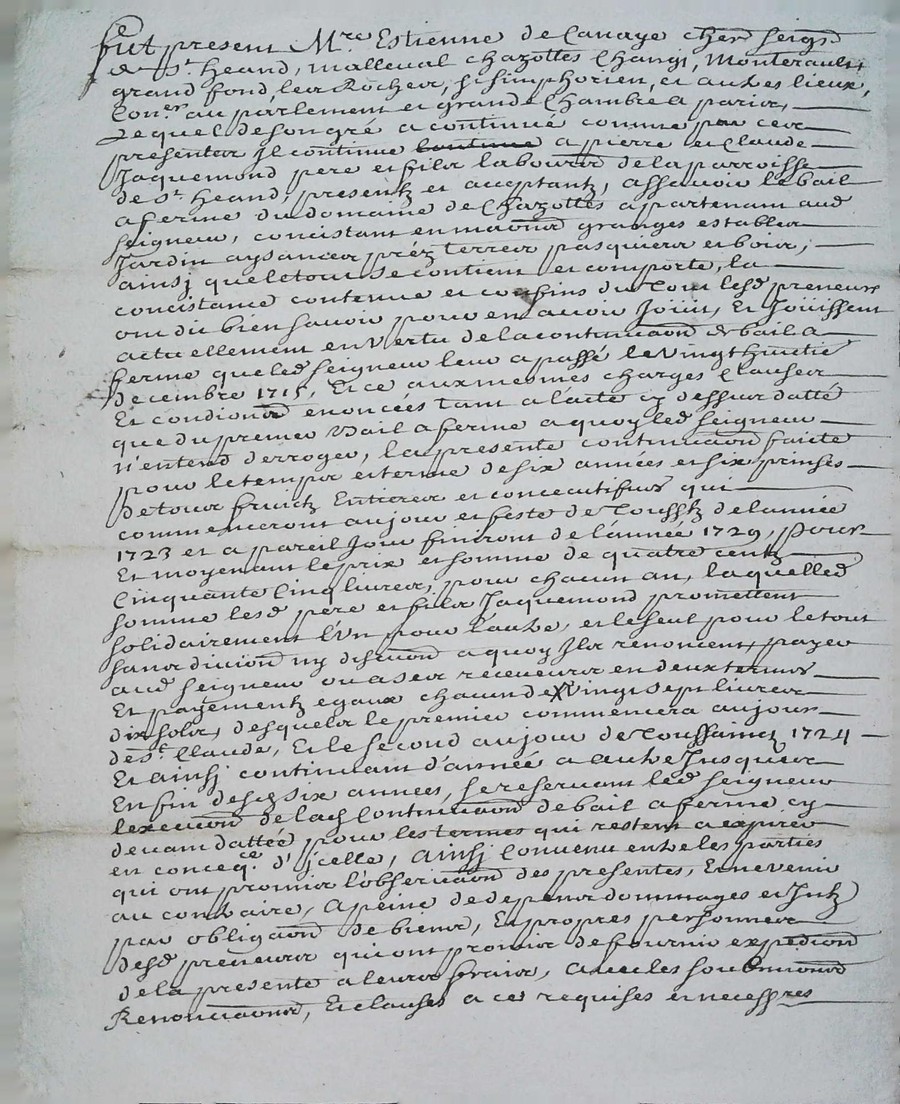 fut present Mre Estienne de Canaye cher seigr
de St. heand, malleval chazottes Changi, Monterault,
grand fond, les Rocher, St simphorien, et autres lieux,
Conser au parlement et grande Chambre a paris,
Lequel de son gré a continué comme par ces
presentes Il continue a pierre et Claude
Jaquemond pere et fils labours de la parroisse
de St. heand, presentz et acceptantz, assavoir le bail
a ferme du domaine de Chazottes apartenant aud
seigneur, concistant en maisons granges establer
Jardin aysances préz terres pasquiers et bois,
ainsj que le tout se contient et comporte, la
concistance contenue et confins du tout lesd preneurs
ont dit bien savoir pour en avoir Joüit, et Joüissent
actuellement en vertu de la continuaon de bail a
ferme que led seigneur leur a passé le vingt huitie
decembre 1715, Et ce aux mesmes charges clauses
Et condions enoncées tant a lacte cy dessus datté
que du premier Bail a ferme a quoy led seigneur
n'entend derroger, la presente continuaon faicte
pour le temps et terme de six années et six prinses
de tous fruictz Entieres et concecutifves qui
commenceront au jour et feste de Tousstz de lannée
1723 et a pareil Jour finiront de l'année 1729, Pour
Et moyenant le prix et somme de quatre centz
Cinquante Cinq livres, pour chacun an, laquelled
somme lesd pere et fils Jaquemond promettent
solidairement l'Un pour l'autre, et le seul pour le tout
sans divicion ny discuon a quoy Ils renoncent, payer
aud seigneur ou a ses receveurs en deux termes
Et payementz egaux chacun de vingt sept livres
dix sols, desquels le premier commencera au jour
de St. Claude, Et le second au jour de Toussaincz 1724
Et ainsj continuant d'année a autre Jusques
En fin desd six années, se reservant led seigneur
lexecuon de lad Continuaon de bail a ferme cy
devant dattée pour les termes qui restent a expirer
en conceqce. d'Jcelle, Ainsj Convenu entre les parties
qui ont promis l'observaon des presentes, Et ne venir
au contraire, A peine de depens dommages et Intz
par obligaon de biens, Et propres personnes
desd preneurs qui ont promis de fournir expedion
de la presente a leurs fraix, avec les soubmions
Renonciaons, Et clauses a ce requises et necessres